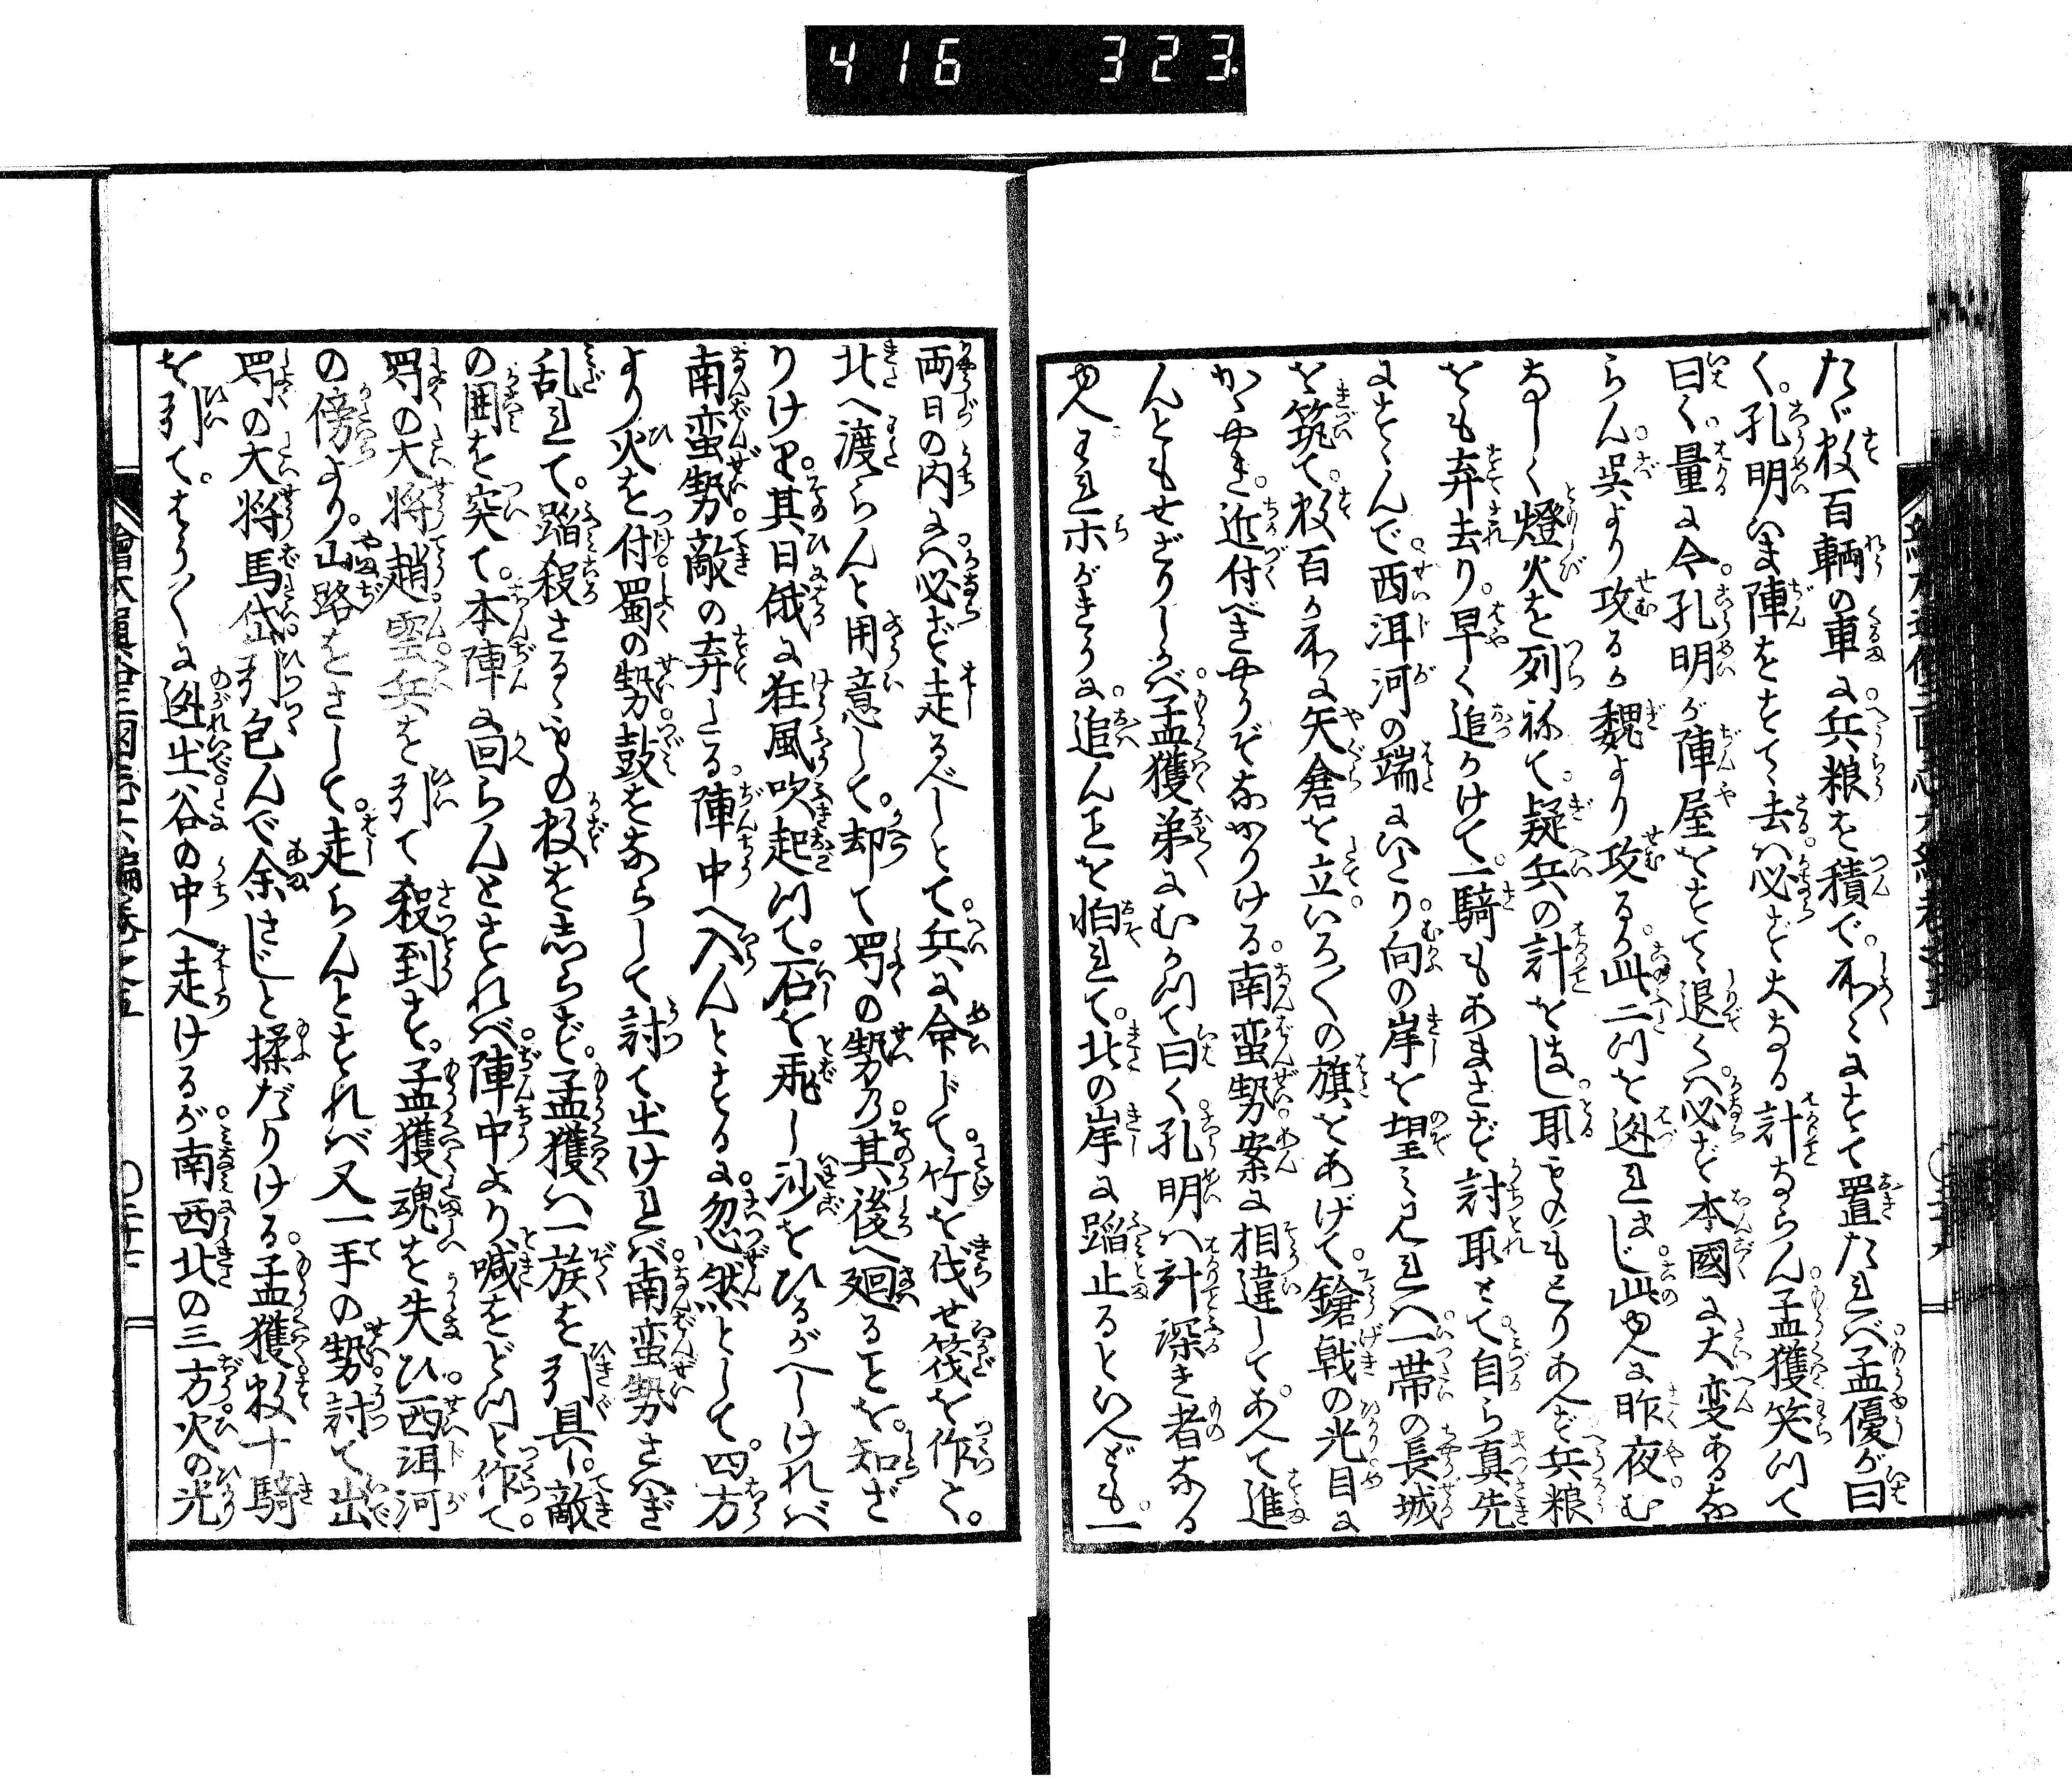 416 323
たゞ数百輌の車に兵粮を積で所々にすて置たれバ孟優が曰
く孔明いま陣をすてゝ去ハ必ず大なる計ならん孟獲笑つて
曰く量に今孔明が陣屋をすてゝ退くハ必ず本國に大変あるな
らん呉より攻るか魏より攻るか此二つを迯れまじ此ゆへに昨夜む
なしく燈火を列ねて疑兵の計をなし取ものもとりあへず兵粮
をも弃去り早く追かけて一騎もあまさず討取とて自ら真先
にすゝんで西洱河の端にいたり向の岸を望み見れハ一帯の長城
を筑て数百か所に矢倉を立いろ〱の旗をあげて鎗戟の光目に
かゝやき近付べきやうぞなかりける南蛮勢案に相違してあへて進
んともせざりしかバ孟獲弟にむかつて曰く孔明ハ計深き者なる
ゆへ我ホがきうに追んことを怕れて北の岸に蹈止るといへども一
両日の内にハ必ず走るべしとて兵に命じて竹を伐せ筏を作ら
北へ渡らんと用意して却て蜀の勢乃其後へ廻ることを知ざ
りけり其日俄に狂風吹起つて石を飛し沙をひるがへしけれバ
南蛮勢敵の弃たる陣中へ入んとするに忽然として四方
より火を付蜀の勢鼓をならして討て出けれバ南蛮勢さハぎ
乱れて蹈殺さるゝもの数を志らず孟獲ハ一族を引具し敵
の囲を突て本陣に回らんとすれバ陣中より喊をどつと作て
蜀の大将趙雲兵を引て殺到す孟獲魂を失ひ西洱河
の傍より山路をさして走らんとすれバ又一手の勢討て出
蜀の大将馬岱引包んで余さじと揉だりける孟獲数十騎
を引てはう〱に迯出谷の中へ走けるが南西北の三方火の光